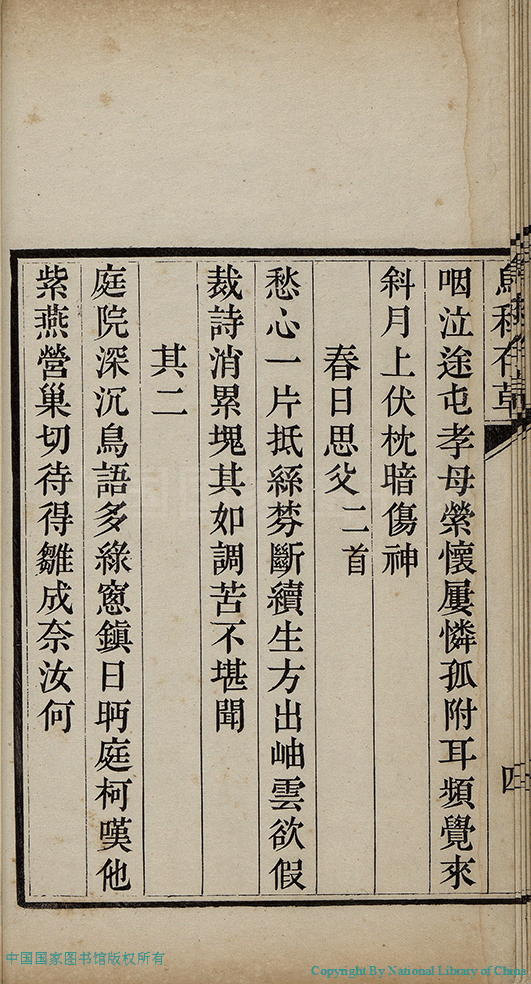 咽泣途屯孝母縈懷屢憐孤附耳頻覺來
斜月上伏枕暗傷神
春日思父二首
愁心一片抵絲棼斷續生方出岫雲欲假
裁詩消累塊其如調苦不堪聞
其二
庭院深沉鳥語多綠窻鎮日眄庭柯嘆他
紫燕營巢切待得雛成奈汝何
四
中国国家图书馆版权所有
Copyright By National Library of China